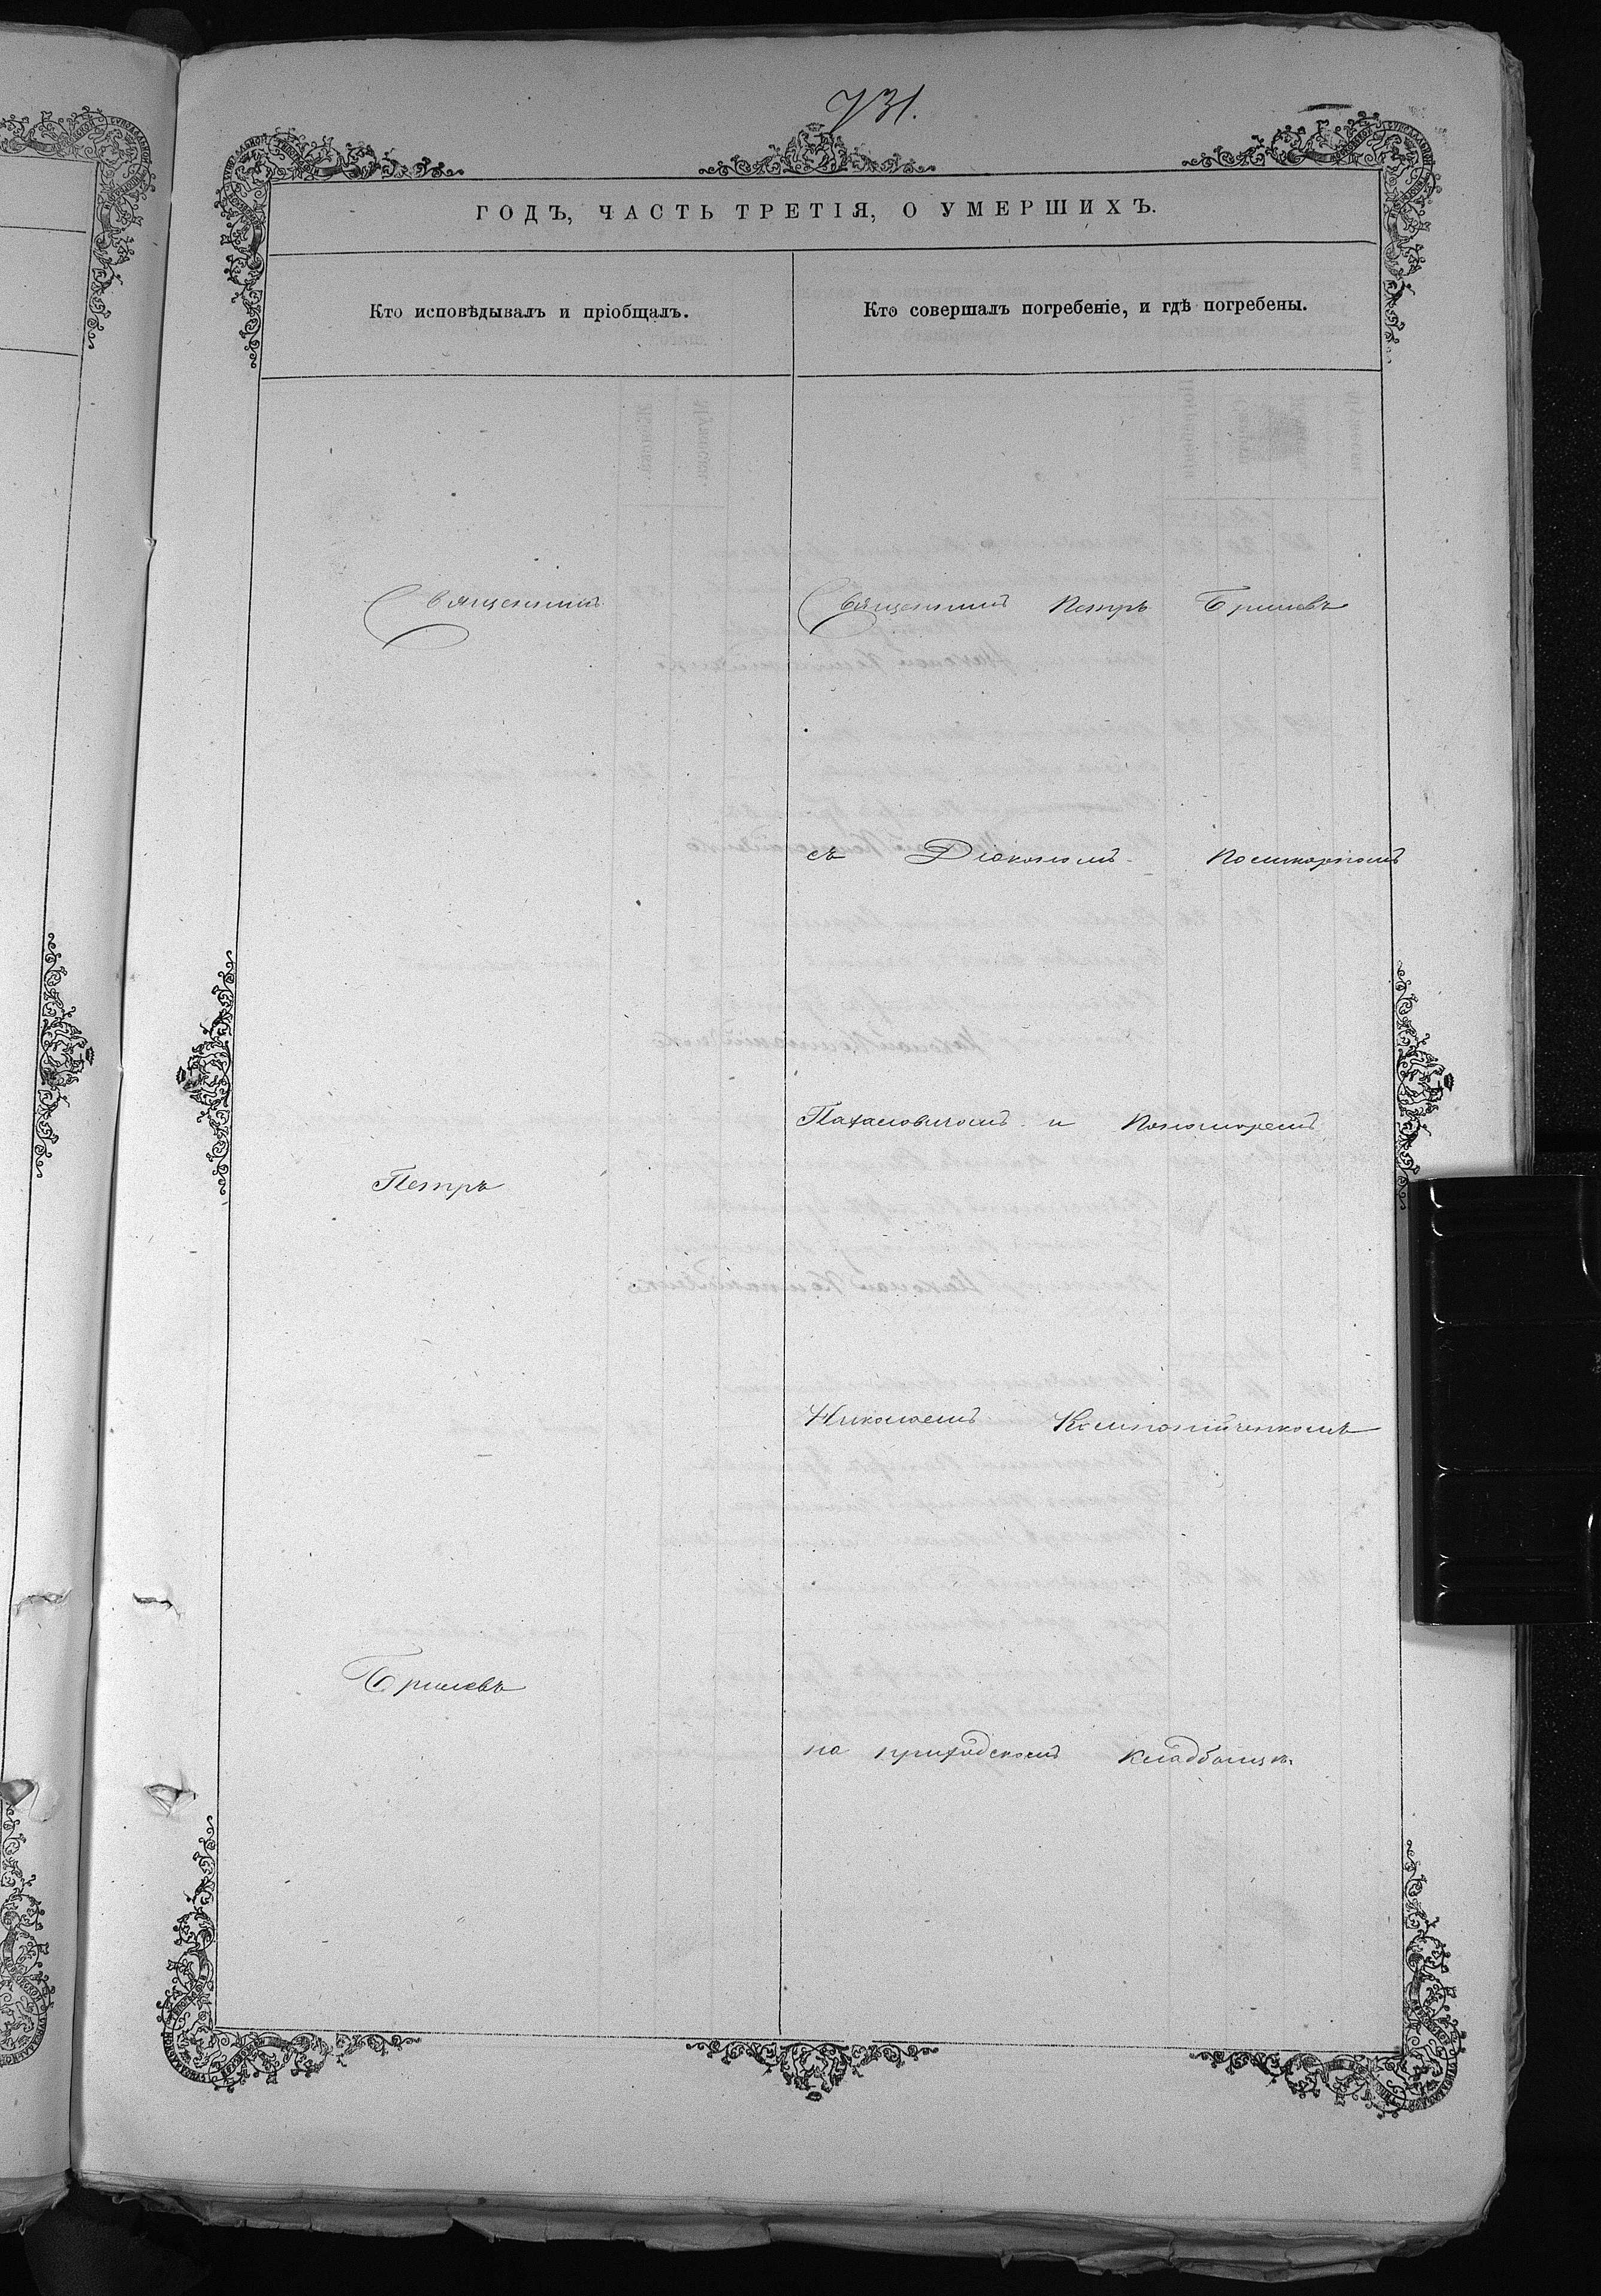 731.
ГОДЪ, ЧАСТЬ ТРЕТІЯ, О УМЕРШИХЪ.
Кто исповѣдывалъ и пріобщалъ.
Кто совершалъ погребеніе, и гдѣ погребены.
Священникъ
Петръ
Брилевъ
Священникъ Петръ Брилевъ
съ Діакономъ Поликарпомъ
Пахаловичомъ и Пономоремъ
Николаемъ Компанійченкомъ
на приходскомъ кладбищѣ.